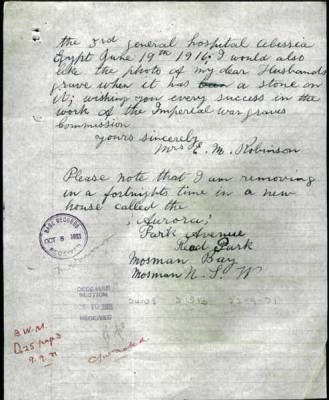 the 3rd general hospital abessia
Egypt June 19th 1916. I would also
like the photo of my dear Husbands
grave when it has a stone on
it; wishing you every success in the
work of the Imperial war graves
Commission
yours sincerely
Mrs E. M. Robinson
Please note that I am removing
in a fortnights time in a new
house called the
"Aurora"
Park Avenue
Reed Park
Mosman Bay
Mosman N. S. W
BASE RECORDS
OCT 8 1921
RECEIVED
SECTION
RECEIVED
B.W.M.